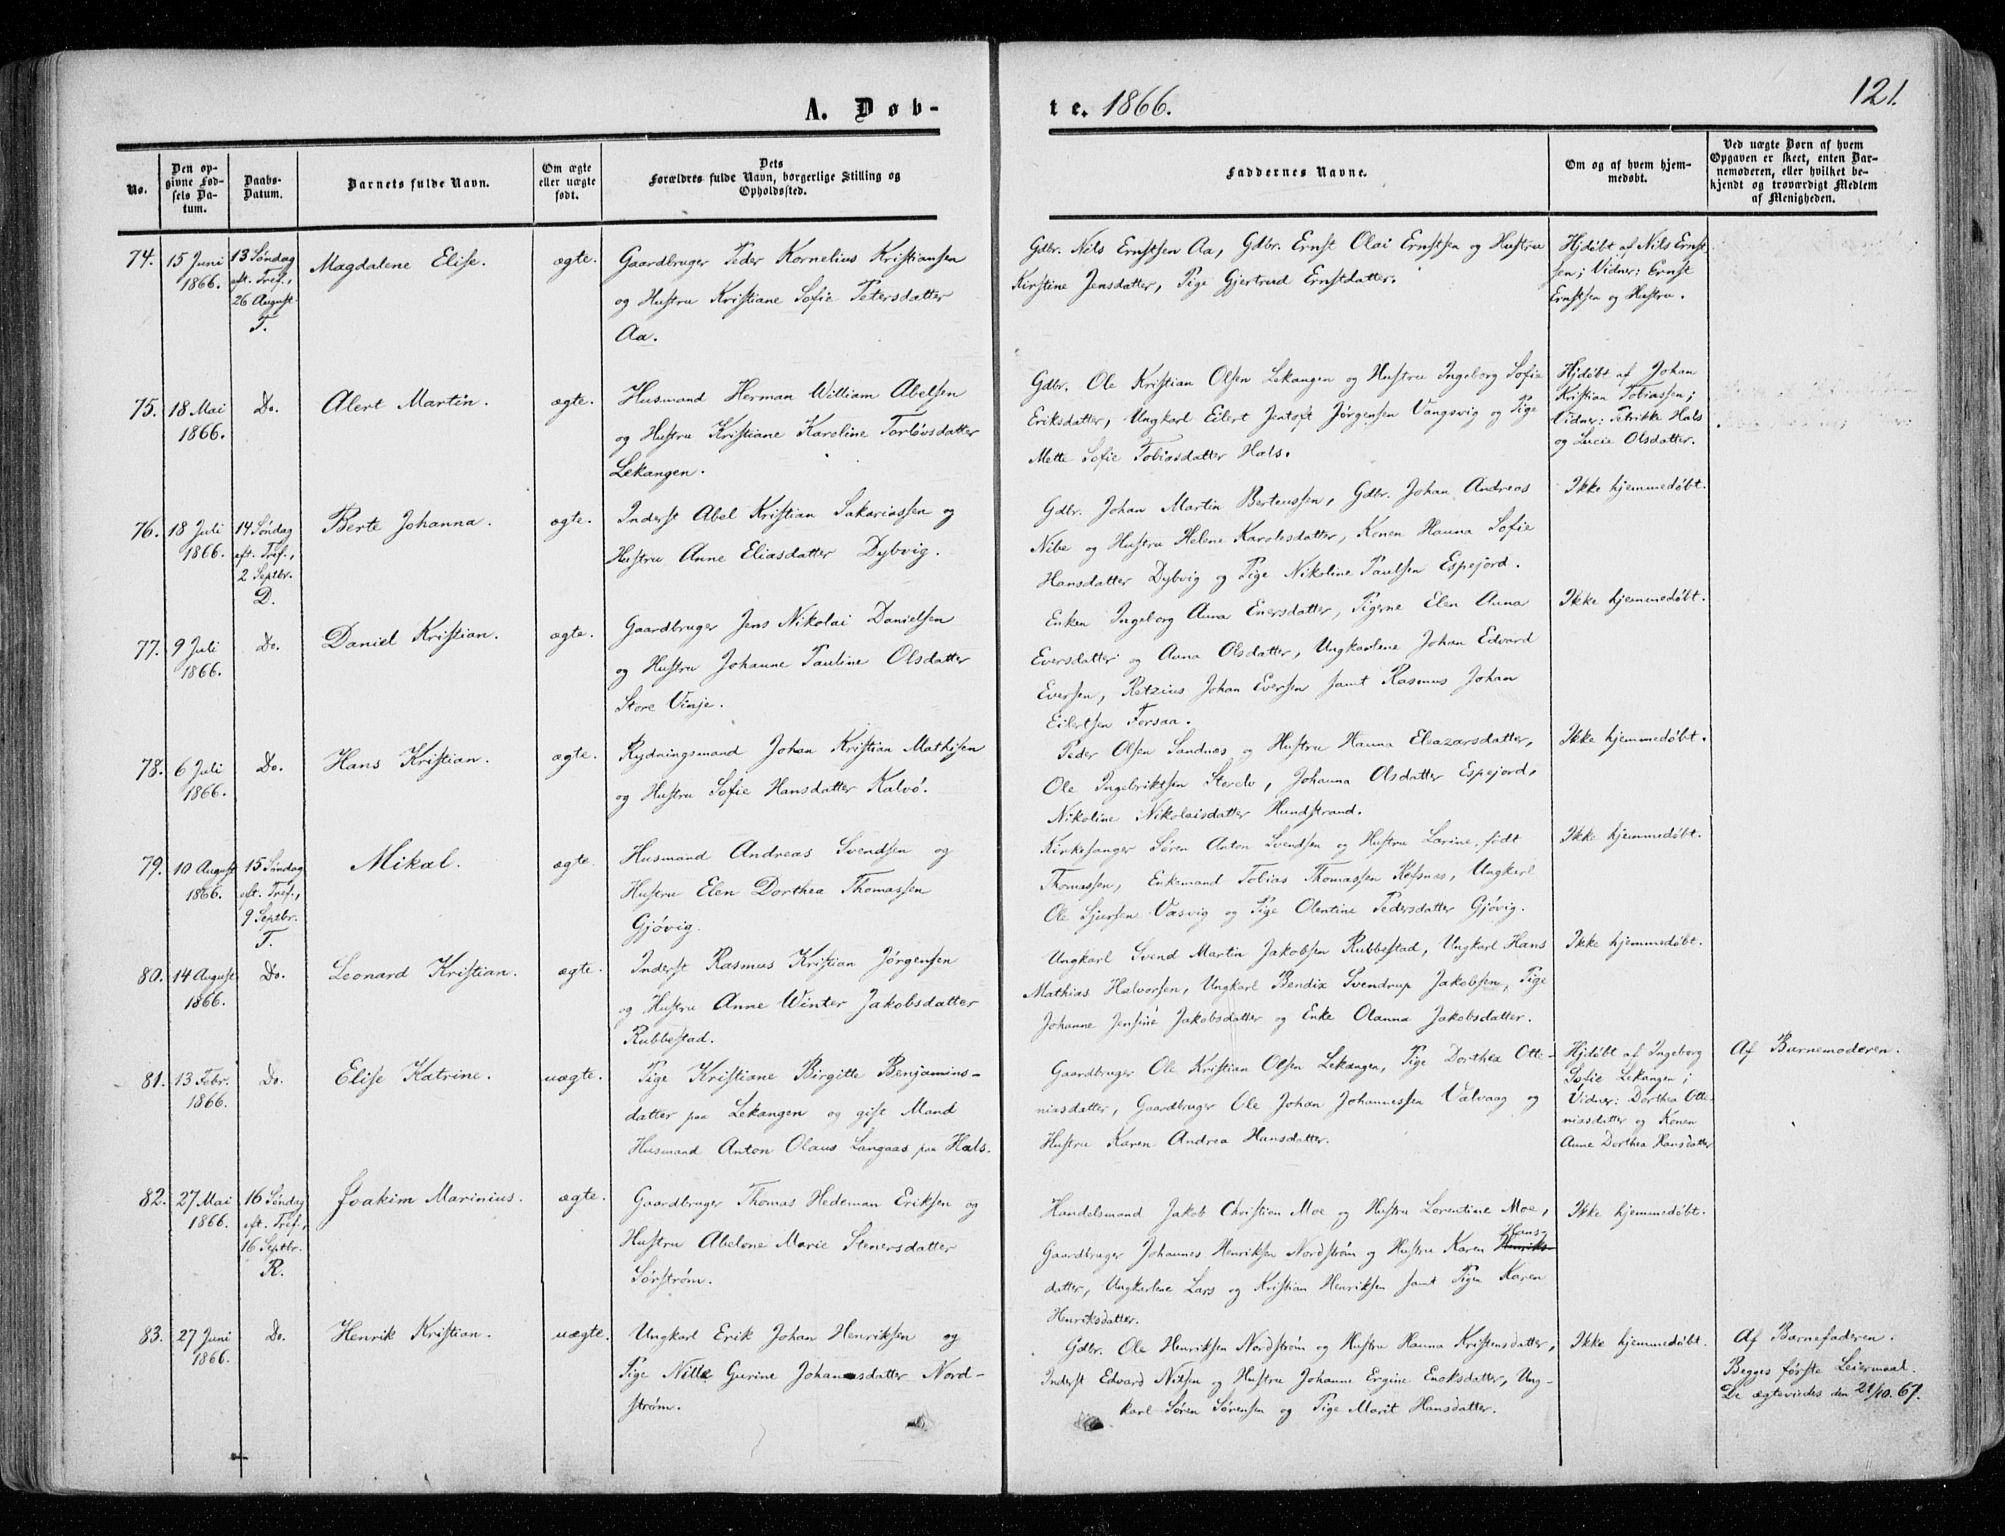 A. Døb-
te. 1866.
121.
No.
Den op-
givne Fød-
sels Da-
tum.
Daabs-
Datum.
Barnets fulde Navn.
Om ægte
eller uægte
født.
Dets
Forældres fulde Navn, borgerlige Stilling og
Opholdssted.
Faddernes Navne.
Om og af hvem hjem-
medøbt.
Ved uægte Børn af hvem
Opgaven er skeet, enten Bar-
nemoderen, eller hvilket be-
kjendt og troværdigt Medlem
af Menigheden.
74.
15 Juni
1866.
13 Søndag
eft. Tref.,
26 August
T.
Magdalene Elise.
ægte.
Gaardbruger Peder Kornelius Kristiansen
og Hustru Kristiane Sofie Petersdatter
Aa.
Gdbr. Nils Ernstsen Aa, Gdbr. Ernst Olai Ernstsen og Hustru
Kirstine Jensdatter, Pige Gjertrud Ernstdatter.
Hjdøbt af Nils Ernst-
sen; Vidner: Ernst
Ernstsen og Hustru.
75.
18 Mai
1866.
Do.
Alert Martin.
ægte.
Husmand Herman William Abelsen
og Hustru Kristiane Karoline Torløvsdatter
Lekangen.
Gdbr. Ole Kristian Olsen Lekangen og Hustru Ingeborg Sofie
Eriksdatter, Ungkarl Eilert Jentoft Jørgensen Vangsvig og Pige
Mette Sofie Tobiasdatter Hals.
Hjdøbt af Johan
Kristian Tobiassen;
Vidner: Petrikke Hals
og Lucie Olsdatter.
76.
18 Juli
1866.
14 Søndag
eft. Tref.,
2 Septbr.
D.
Berte Johanna.
ægte.
Inderst Abel Kristian Sakariassen og
Hustru Anne Eliasdatter Dybvig.
Gdbr. Johan Martin Berteussen, Gdbr. Johan Andreas
Nibe og Hustru Helene Karolusdatter, Konen Hanna Sofie
Hansdatter Dybvig og Pige Nikoline Paulsen Espejord.
Ikke hjemmedøbt.
77.
9 Juli
1866.
Do.
Daniel Kristian.
ægte.
Gaardbruger Jens Nikolai Danielsen
og Hustru Johanne Pauline Olsdatter
Store Vinje.
Enken Ingeborg Anna Enersdatter, Pigerne Elen Anna
Eversdatter og Anna Olsdatter, Ungkarlene Johan Edvard
Eversen, Retzius Johan Eversen samt Rasmus Johan
Eilertsen Forsaa.
Ikke hjemmedøbt.
78.
6 Juli
1866.
Do.
Hans Kristian.
ægte.
Rydningsmand Johan Kristian Mathisen
og Hustru Sofie Hansdatter Kalvø.
Peder Olsen Sandnes og Hustru Hanna Eleazarsdatter,
Ole Ingebriktsen Storelv, Johanna Olsdatter Espejord,
Nikoline Nikolaisdatter Hundstrand.
Ikke hjemmedøbt.
79.
10 August
1866.
15 Søndag
eft. Tref.,
9 Septbr.
T.
Mikal.
ægte.
Husmand Andreas Svendsen og
Hustru Elen Dorthea Thomassen
Gjøvig.
Kirkesanger Søren Anton Svendsen og Hustru Larine, født
Thomassen, Enkemand Tobias Thomassen Refsnæs, Ungkarl
Ole Sjursen Vasvig og Pige Olentine Pedersdatter Gjøvig.
Ikke hjemmedøbt.
80.
14 August
1866.
Do.
Leonard Kristian.
ægte.
Inderst Rasmus Kristian Jørgensen
og Hustru Anne Winter Jakobsdatter
Rubbestad.
Ungkarl Svend Martin Jakobsen Rubbestad, Ungkarl Hans
Mathias Halvorsen, Ungkarl Bendix Svendrup Jakobsen, Pige
Johanne Jensine Jakobsdatter og Enke Olanna Jakobsdatter.
Ikke hjemmedøbt.
81.
13 Febr.
1866.
Do.
Elise Katrine.
uægte.
Pige Kristiane Birgitte Benjamins-
datter paa Lekangen og gift Mand
Husmand Anton Olaus Langaas paa Hals.
Gaardbruger Ole Kristian Olsen Lekangen, Pige Dorthea Otte-
niasdatter, Gaardbruger Ole Johan Johannessen Valvaag og
Hustru Karen Andrea Hansdatter.
Hjdøbt af Ingeborg
Sofie Lekangen;
Vidner: Dorthea Otte-
niasdatter og Konen
Anne Dorthea Hansdatter
Af Barnemoderen.
82.
27 Mai
1866.
16 Søndag
eft. Tref.,
16 Septbr.
R.
Joakim Marinius.
ægte.
Gaardbruger Thomas Hedeman Eriksen og
Hustru Abelone Marie Stenersdatter
Sørstrøm.
Handelsmand Jakob Christian Moe og Hustru Lorentine Moe,
Gaardbruger Johannes Henriksen Nordstrøm og Hustru Karen Henriks- Hans-
datter, Ungkarlene Lars og Kristian Henriksen samt Pigen Karen
Henriksdatter.
Ikke hjemmedøbt.
83.
27 Juni
1866.
Do.
Henrik Kristian.
uægte.
Ungkarl Erik Johan Henriksen og
Pige Nille Gurine Johannesdatter Nord-
strøm.
Gdbr. Ole Henriksen Nordstrøm og Hustru Hanna Kristensdatter,
Inderst Edvard Nilsen og Hustru Johanne Ergine Enoksdatter, Ung-
karl Søren Sørensen og Pige Marit Hansdatter.
Ikke hjemmedøbt.
Af Barnefaderen.
Begges første Leiermaal.
De ægteviedes den 21/10. 67.